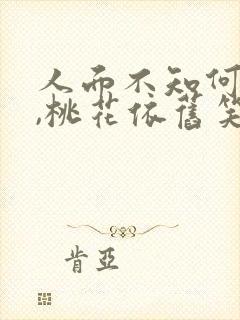 人而不知何
,桃花依舊笑
肯亞